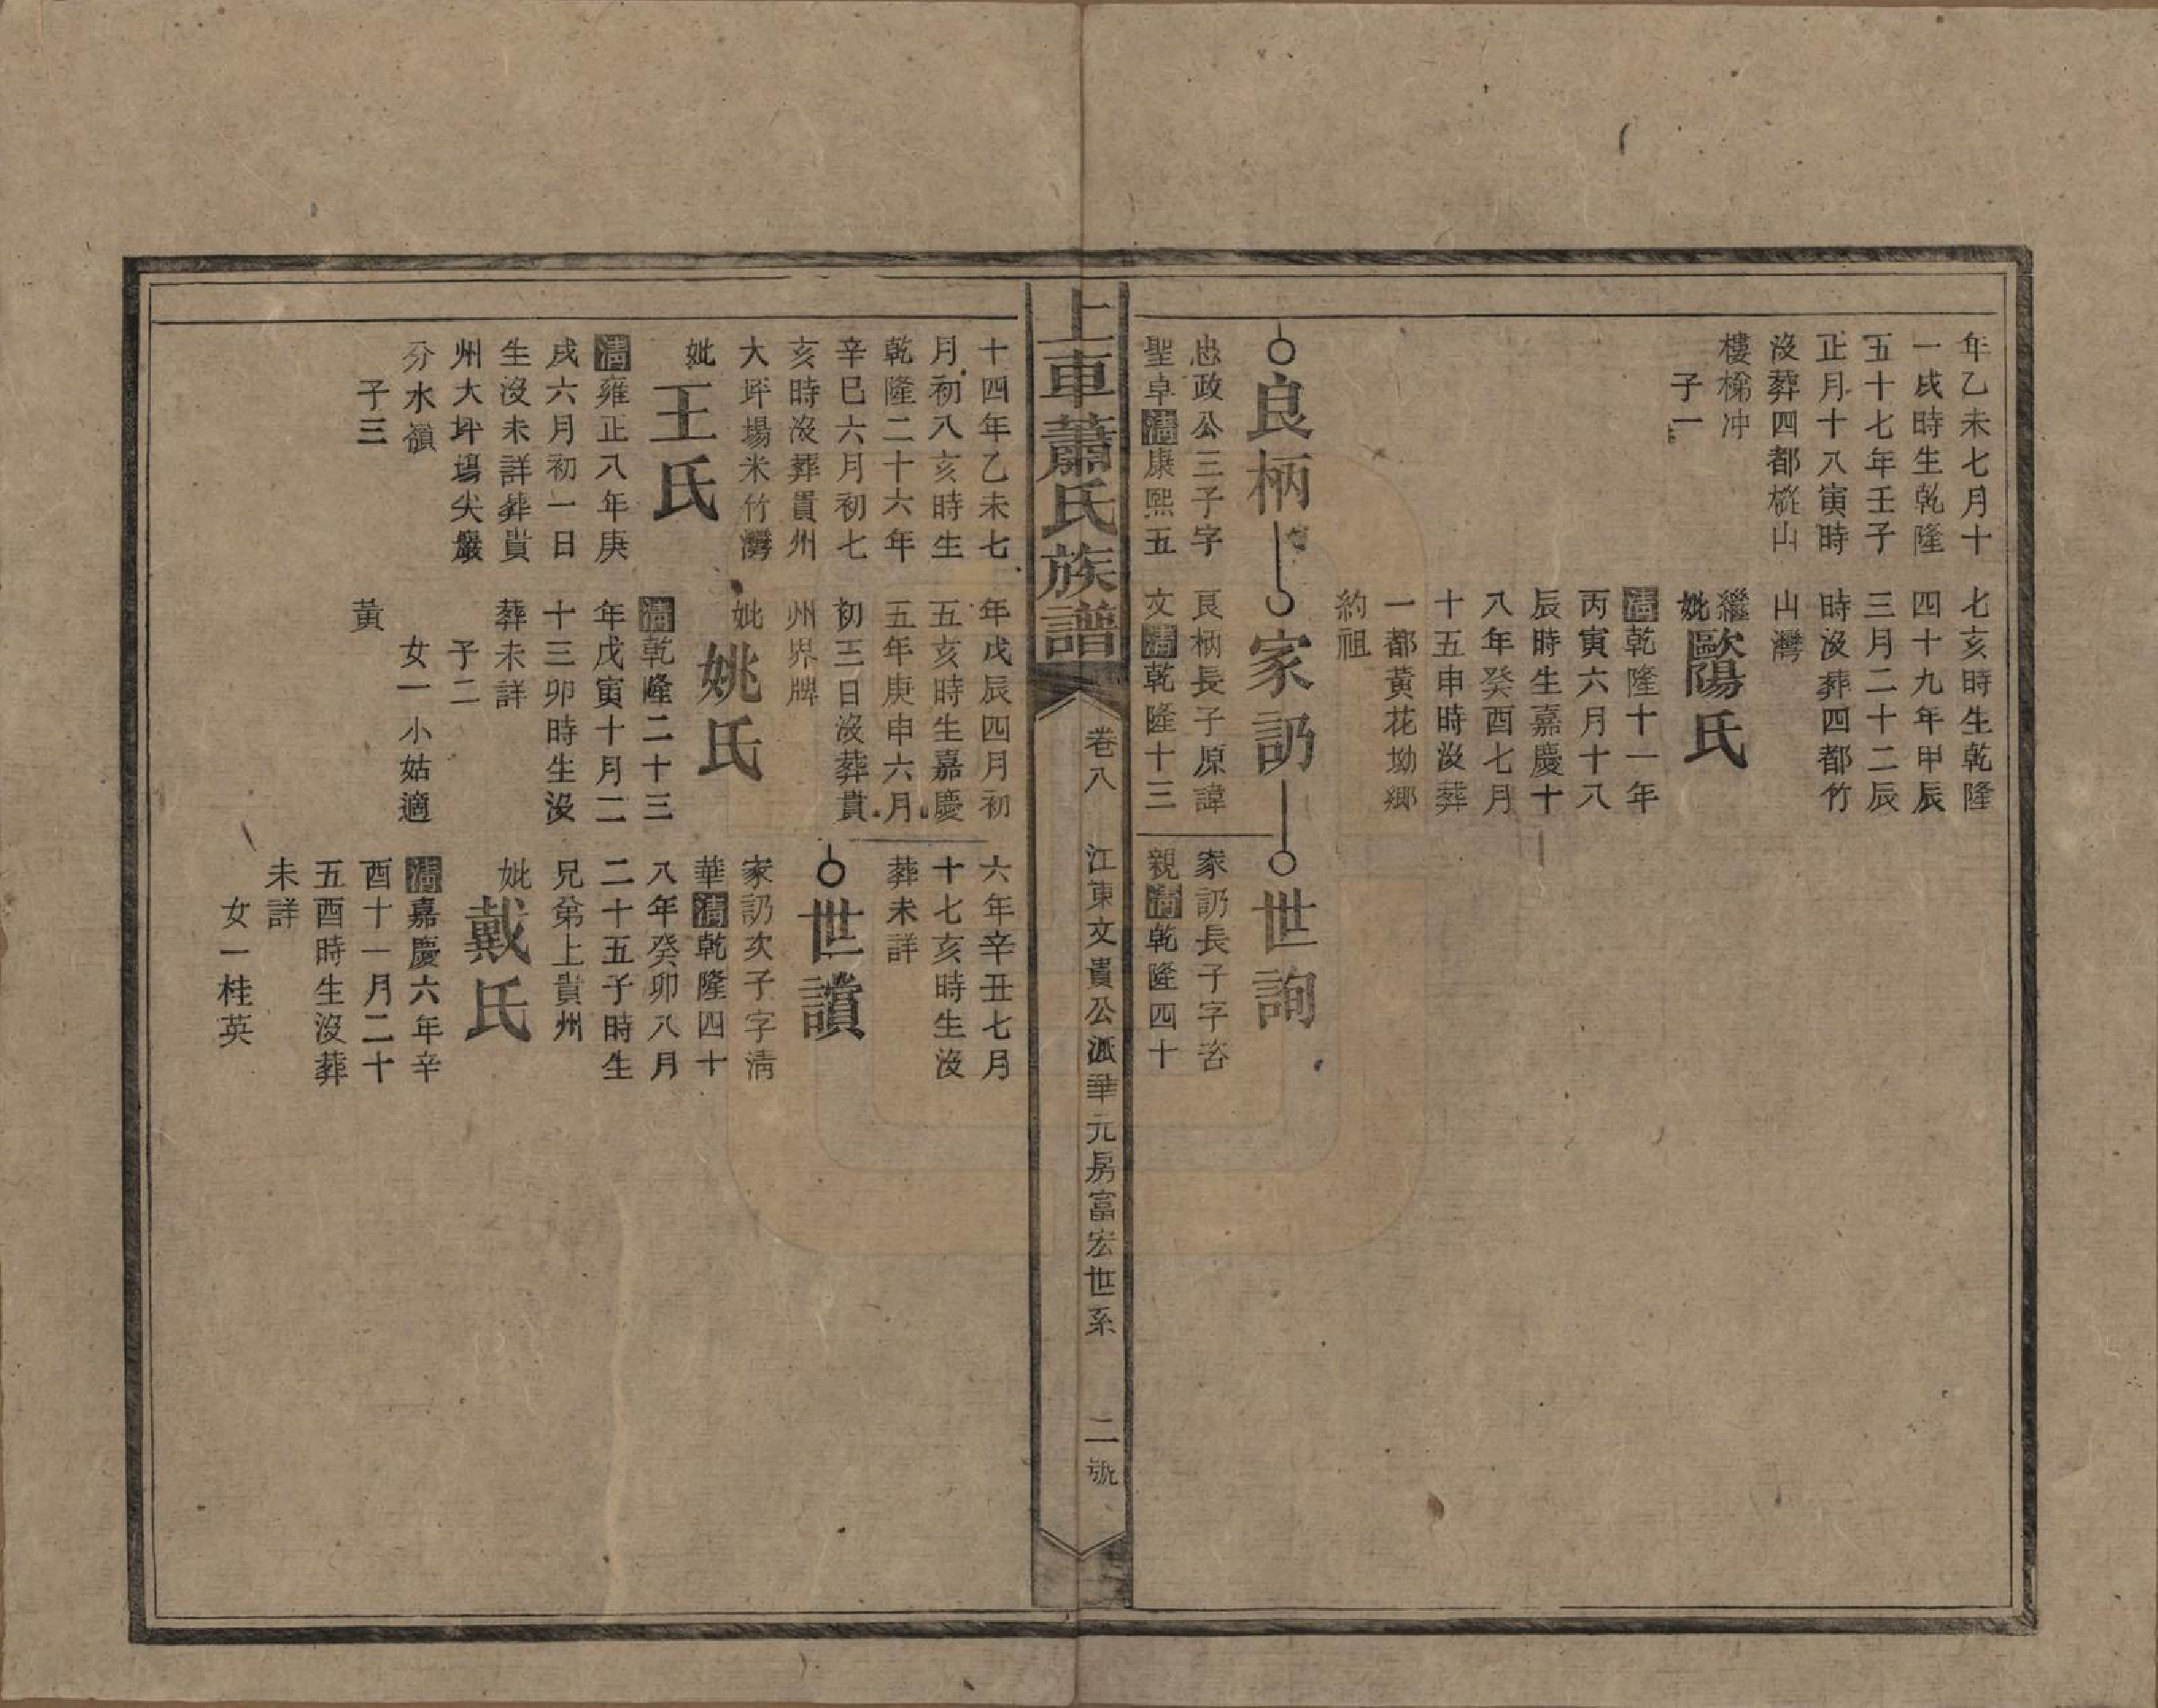 年乙未七月十
一戌時生乾隆
五十七年壬子
正月十八寅時
沒葬四都樅山
樓梯冲
子一
七亥時生乾隆
四十九年甲辰
三月二十二辰
時沒葬四都竹
山灣
繼妣歐陽氏
清乾隆十一年
丙寅六月十八
辰時生嘉慶十
八年癸酉七月
十五申時沒葬
一都黃花坳鄉
約祖
良柄
忠政公三子字
聖卓清康熙五
家訒
良柄長子原諱
文清乾隆十三
世詢
家訒長子字咨
親清乾隆四十
上車蕭氏族譜
卷八
江東文貴公派華元房富宏世系
二號
十四年乙未七
月初八亥時生
乾隆二十六年
辛巳六月初七
亥時沒葬貴州
大坪場米竹灣
妣王氏
清雍正八年庚
戌六月初一日
生沒未詳葬貴
州大坪場尖巖
分水嶺
子三
年戊辰四月初
五亥時生嘉慶
五年庚申六月
初三日沒葬貴
州界牌
妣姚氏
清乾隆二十三
年戊寅十月二
十三卯時生沒
葬未詳
子二
女一小姑適
黃
六年辛丑七月
十七亥時生沒
葬未詳
世讚
家訒次子字清
華清乾隆四十
八年癸卯八月
二十五子時生
兄弟上貴州
妣戴氏
清嘉慶六年辛
酉十一月二十
五酉時生沒葬
未詳
女一桂英